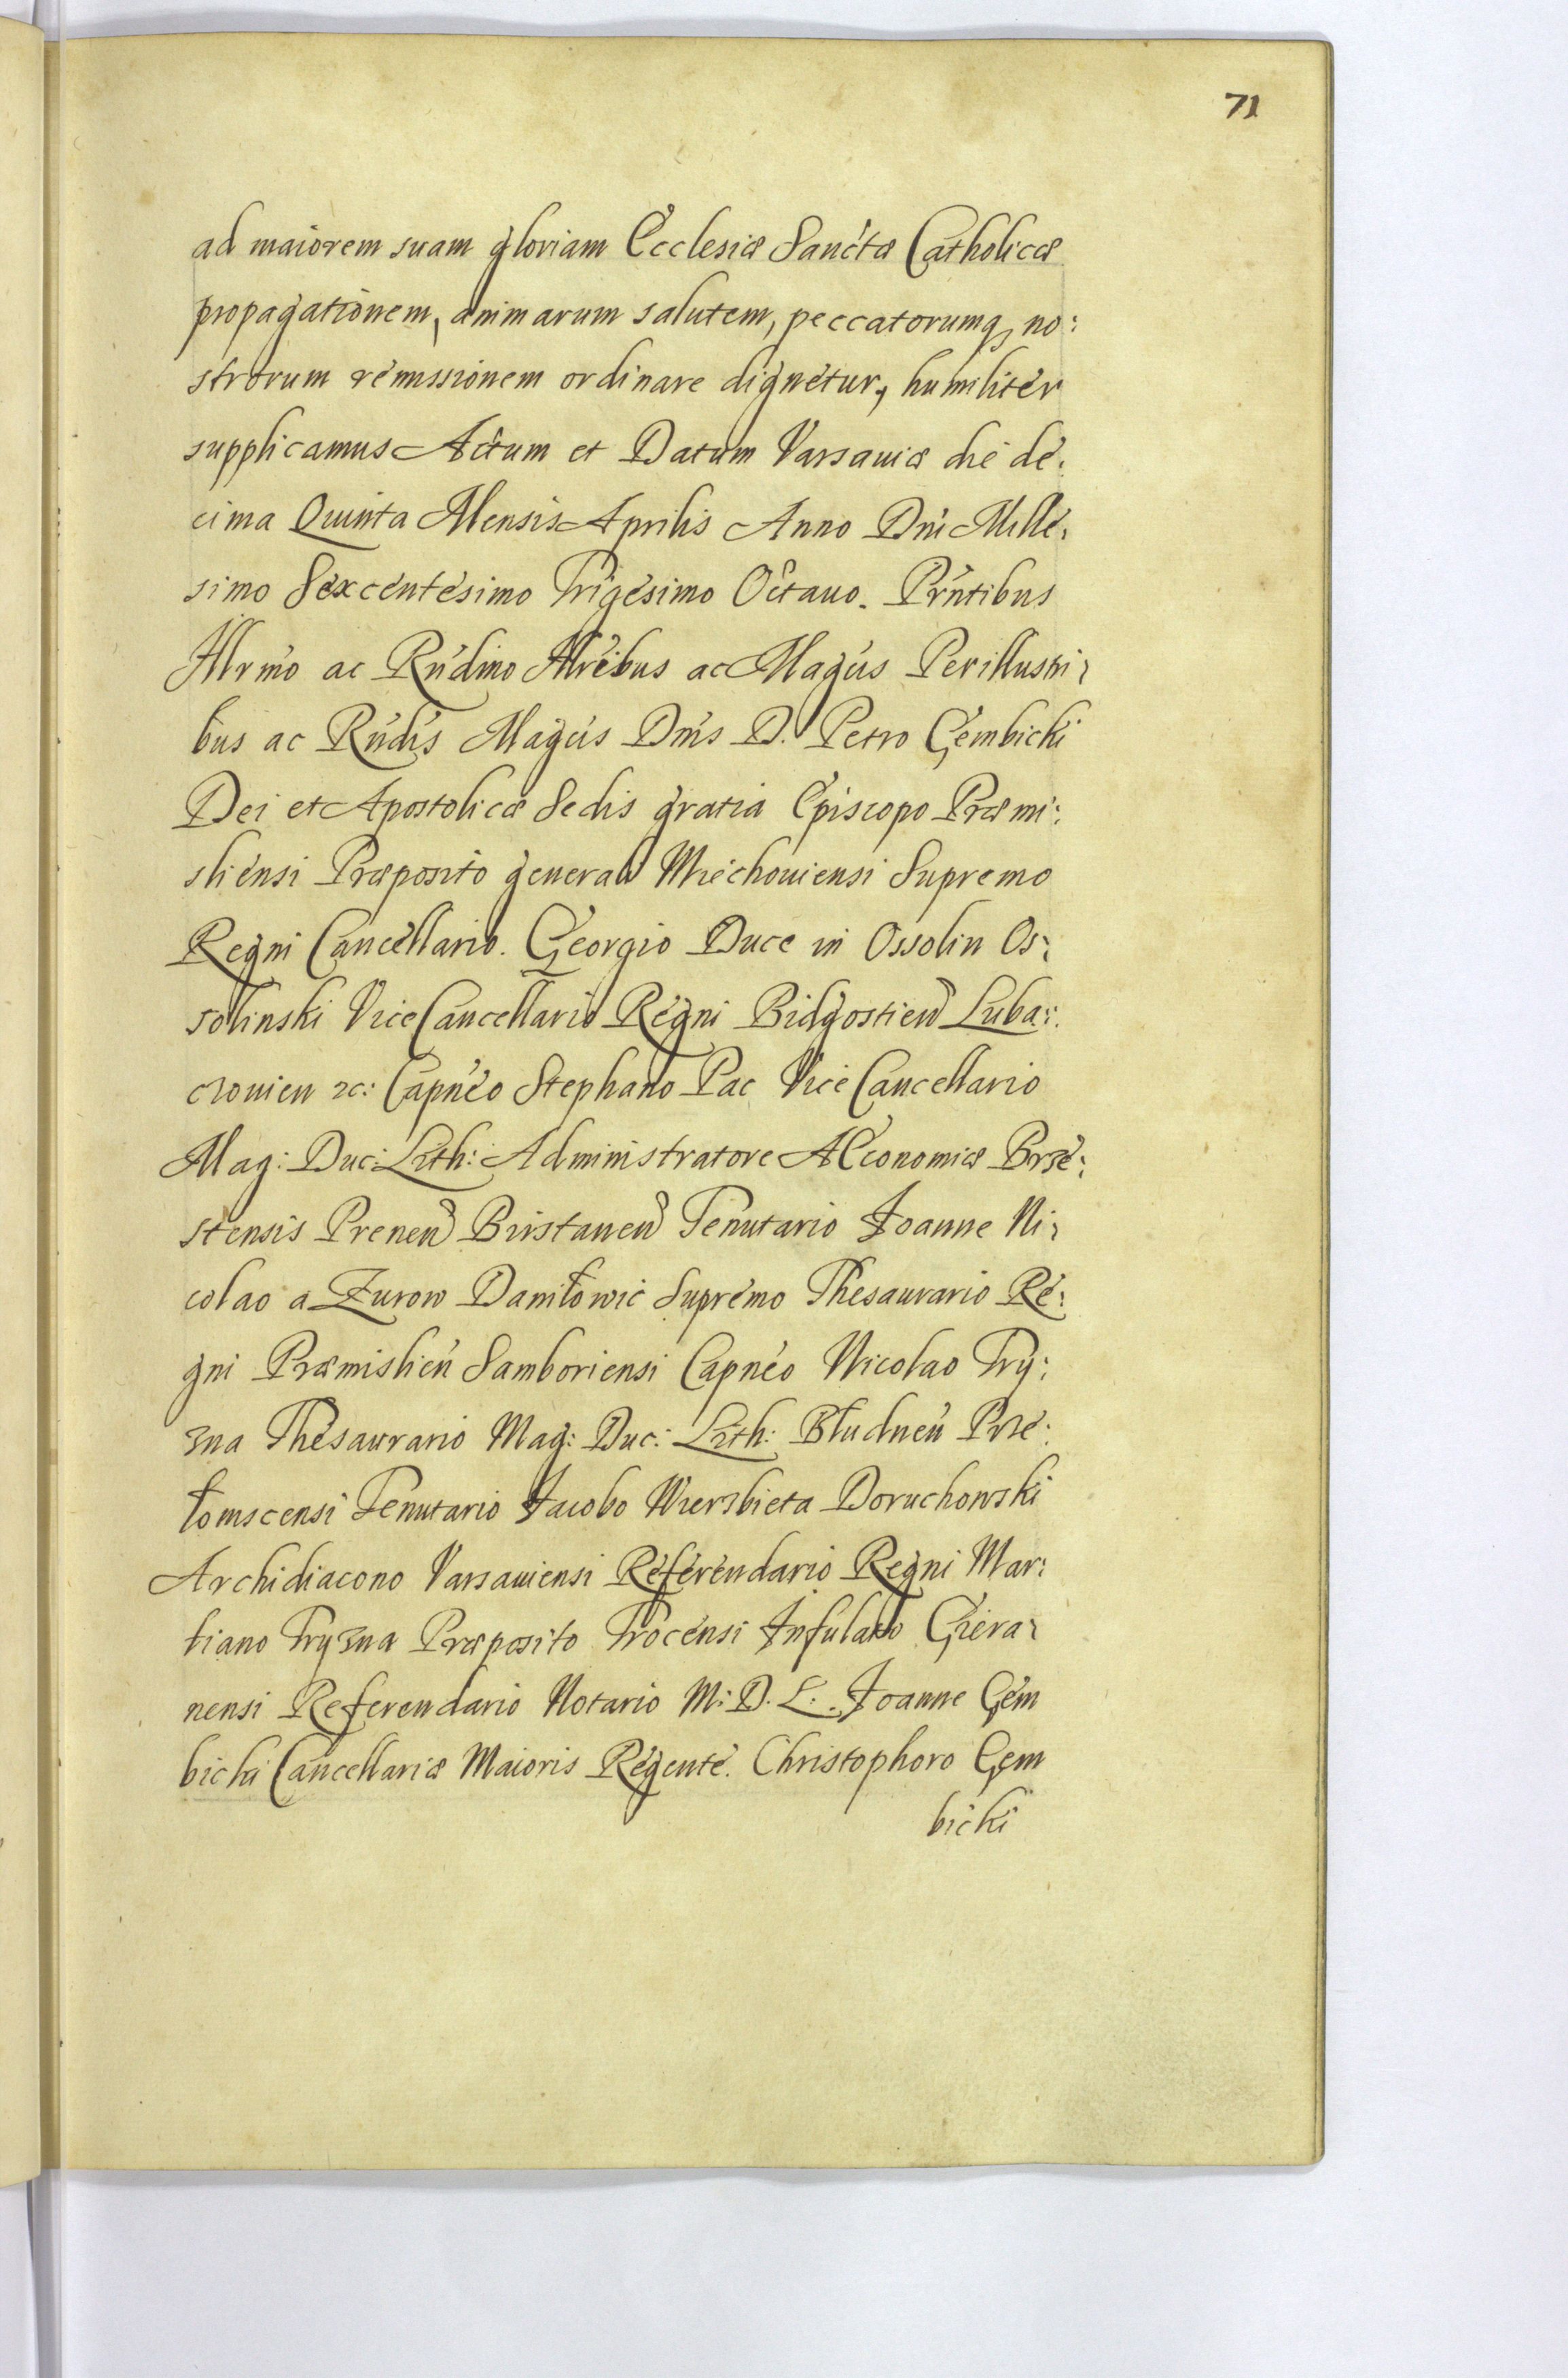 71
ad maiorem suam gloriam Ecclesiæ Sanctæ Catholicæ
propagationem, animarum salutem, peccatorumq, no:
strorum remissionem ordinare dignetur, humiliter
supplicamus Actum et Datum Varsauiæ die de:
cima Quinta Mensis Aprilis Anno Dni Mille:
simo Sexcentesimo Trigesimo Octauo. Prntibus
Illrmo ac Rndmo Illrebus ac Magcis Perillustri:
bus ac Rndis Magcis Dnis D. Petro Gembicki
Dei et Apostolicæ Sedis gratia Episcopo Præmi:
sliensi Præposito generali Miechouiensi Supremo
Regni Cancellario. Georgio Duce in Ossolin Os:
solinski Vice Cancellario Regni Bidgostien Luba:
czouien &c: Capneo Stephano Pac Vice Cancellario
Mag: Duc: Lith: Administratore AEconomiæ Brze:
stensis Prenen Birstanen Tenutario Joanne Ni:
colao a Zurow Daniłowic Supremo Thesaurario Re:
gni Præmislien Samboriensi Capneo Nicolao Try:
zna Thesaurario Mag: Duc: Lith: Błudnen Prze:
łomscensi Tenutario Jacobo Wierzbieta Doruchowski
Archidiacono Varsauiensi Referendario Regni Mar:
tiano Tryzna Præposito Trocensi Infulato Giera:
nensi Referendario Notario M: D. L: Joanne Gem
bicki Cancellariæ Maioris Regente. Christophoro Gem
bicki